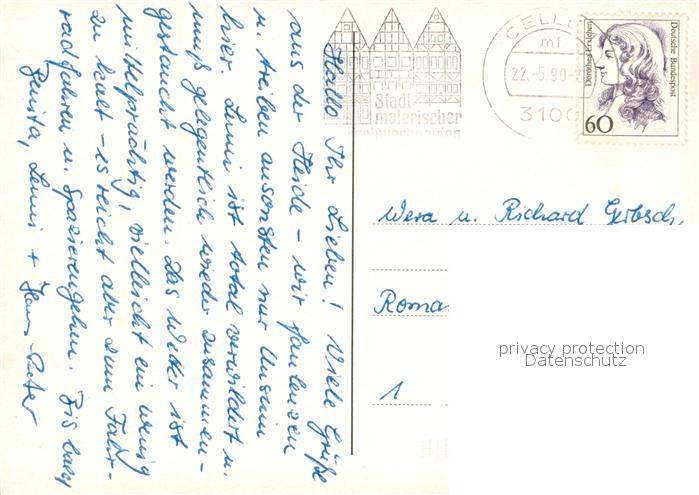 Hallo Ihr Lieben! Viele Grüße
aus der Heide - wir faulenzen
u. treiben ansonsten nur Unsinn
hier. Lenni ist total verwildert u.
muß gelegentlich wieder zusammen-
gestaucht werden. Das Wetter ist
mittelprächtig, vielleicht ein wenig
zu kalt - es reicht aber zum Fahr-
radfahren u. Spazierengehen. Bis bald
Lenni + Hans-Peter
Stadt
malerischer
Fachwerkbauten
CELLE
mf
22.-5.90-
3100
Dorothea Erxleben
Deutsche Bundespost
60
Wera u. Richard
Roma
1
privacy protection
Datenschutz